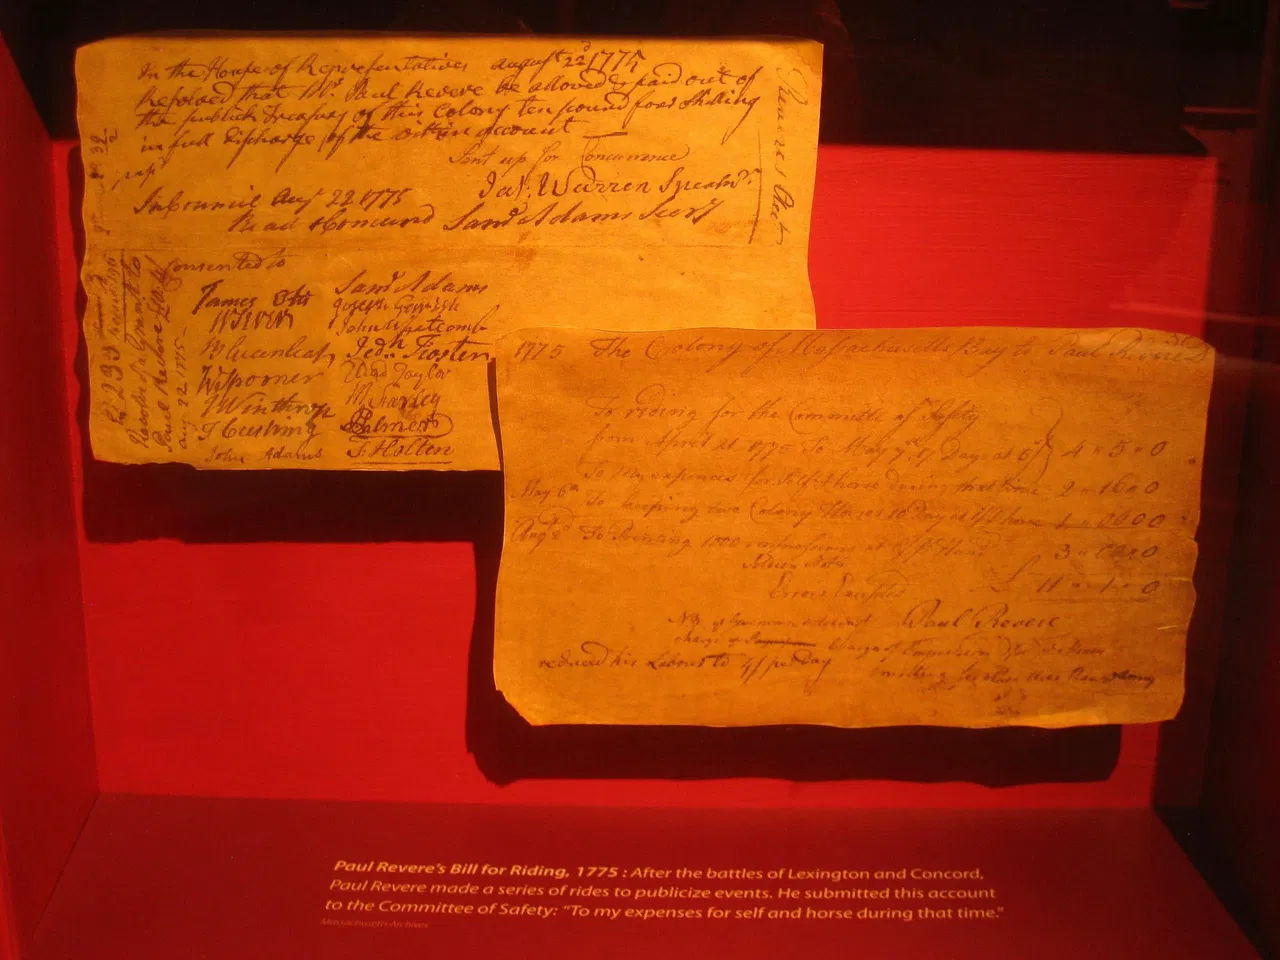 In the House of Representatives august 22d 1775
Resolved that Mr. Paul Revere be allowed & paid out of
the publick Treasury of this Colony ten pound four shilling
in full discharge of the within account
Sent up for Concurrence
Jas. Warren Speakr.
In Council Aug 22 1775
Read & Concurrd Saml Adams Secry
Consented to
James Otis
W Sever
B Greenleaf
W Spooner
J Winthrop
T Cushing
John Adams
Saml Adams
Joseph Gerrish
John Whetcomb
Jedh Foster
Eldad Taylor
M Farley
J Palmer
S Holten
Resolve
Paul Revere
aug 22 1775
1775 The Colony of Massachusetts Bay to Paul Revere Dr
To riding for the Committe of Safety
from April 21 1775 To May 7th 17 Days at 5/ 4 " 5 " 0
To my expences for self & horse during that time 2 " 16 " 0
May 6th To keeping two Colony Horses 10 Day at 1/ horse 1 " 0 " 0
Augt 2d To Printing 1000 impressions at 6/ Hund
Soldiers Notes 3 " 0 " 0
£ 11 " 1 " 0
Errors Excepted
Paul Revere
reduced his Labour to 4/ per Day
Paul Revere's Bill for Riding, 1775 : After the battles of Lexington and Concord,
Paul Revere made a series of rides to publicize events. He submitted this account
to the Committee of Safety: “To my expenses for self and horse during that time.”
Massachusetts Archives